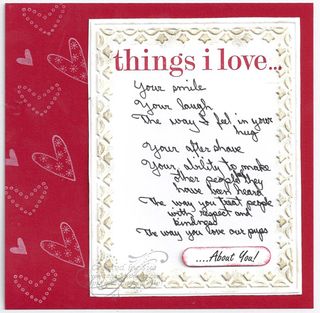 things i love...
Your smile
Your laugh
The way I feel in your
hug
Your after shave
Your, ability to make
other people feel they
have been heard
The way you treat people
with respect and
kindness
The way you love our pups
....About You!